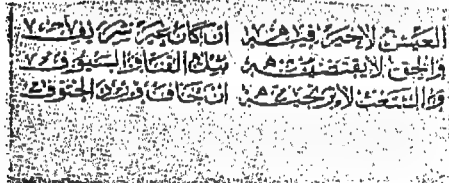 العيش لا خير فيه ان كان غير شريف
والحق لا يقتضيه مثل القنا والسيوف
والشعب لا ان خاف ورد الحتوف